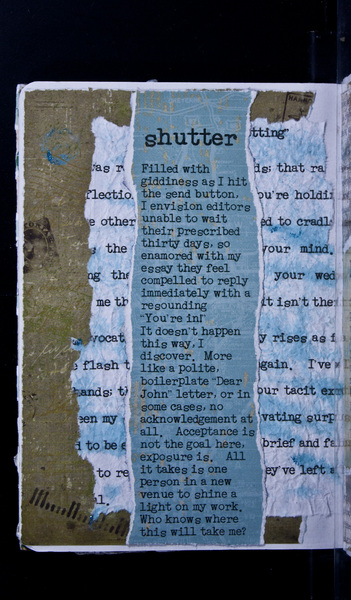 shutter
Filled with
giddiness as I hit
the send button,
I envision editors
unable to wait
their prescribed
thirty days, so
enamored with my
essay they feel
compelled to reply
immediately with a
resounding
"You're in!"
It doesn't happen
this way, I
discover. More
like a polite,
boilerplate "Dear
John" letter, or in
some cases, no
acknowledgement at
all. Acceptance is
not the goal here,
exposure is. All
it takes is one
person in a new
venue to shine a
light on my work.
Who knows where
this will take me?
tting"
as r
ds; that ra
flectio
ou're holdi
e other
ed to cradl
the
your mind.
ng the
your wed
me th
it isn't the
vocat
y rises as i
flash t
gain. I've
ands; t
our tacit ex
en my
vating surp
to be
brief and fa
to re
ey've left a
l.